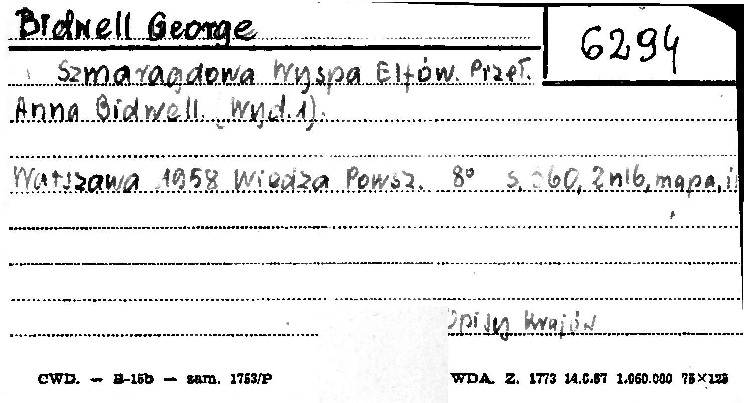 Bidwell George
6294
Szmaragdowa Wyspa Elfów. Przeł.
Anna Bidwell. (Wyd.1).
Warszawa 1958 Wiedza Powsz. 8° s. 360, 2nlb, mapa, il
Opisy Krajów
CWD. — B-15b — zam. 1753/P
WDA. Z. 1773 14.6.57 1.060.000 75×125